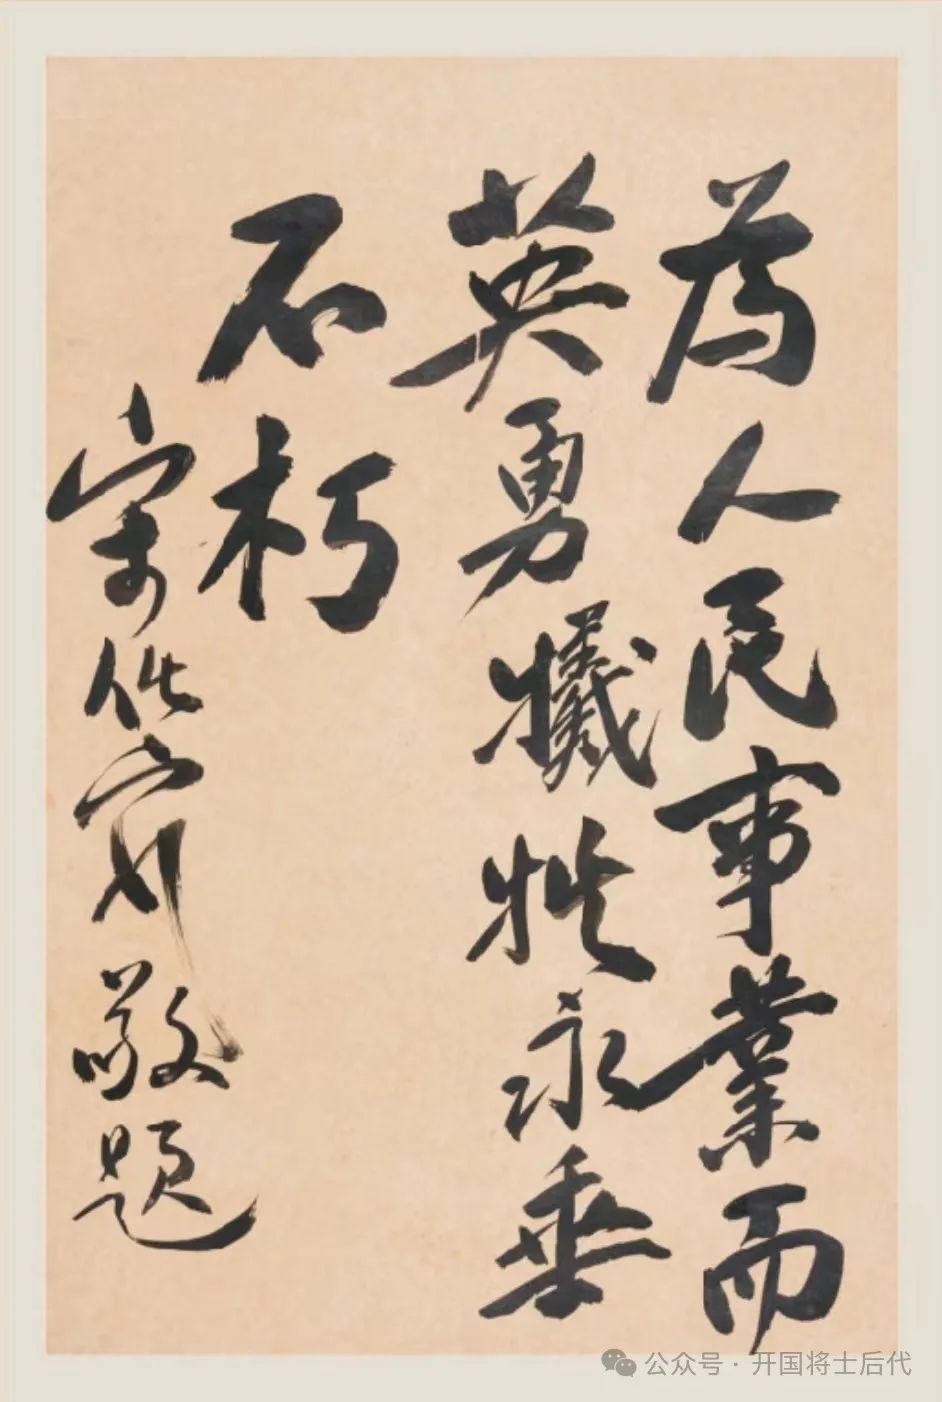 為人民事業而
英勇犧牲永垂
不朽
宋任穷敬題
公众号·开国将士后代